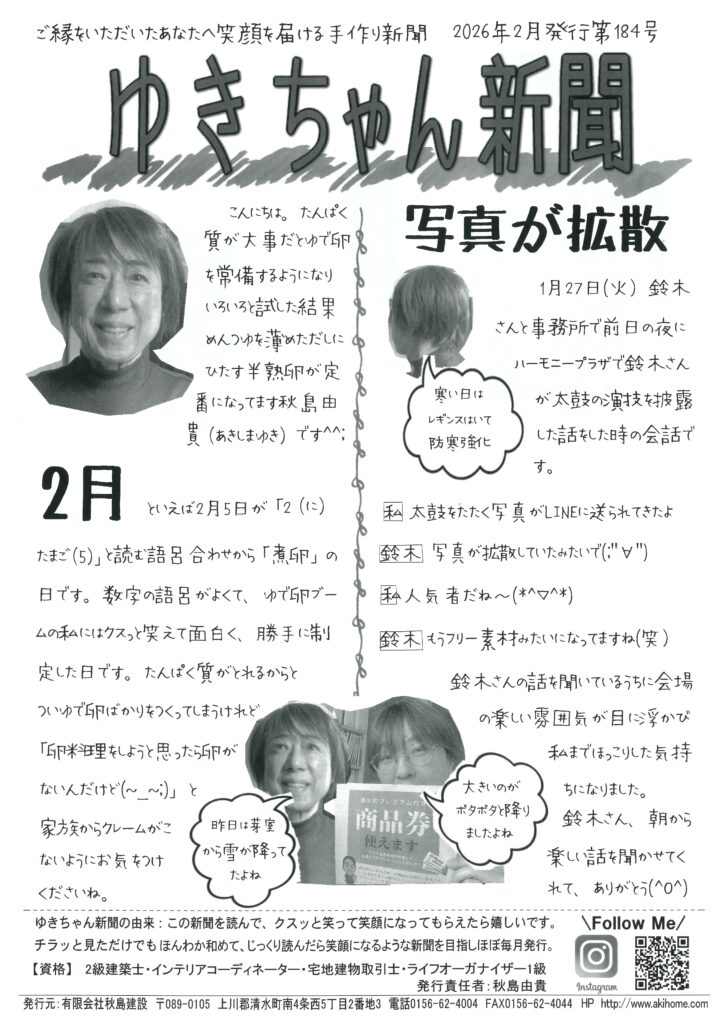 ご縁をいただいたあなたへ笑顔を届ける手作り新聞 2026年2月発行第184号
ゆきちゃん新聞
こんにちは。たんぱく
質が大事だとゆで卵
を常備するようになり
いろいろと試した結果
めんつゆを薄めただしに
ひたす半熟卵が定
番になってます秋島由
貴(あきしまゆき)です^^;
2月
といえば2月5日が「2(に)
たまご(5)」と読む語呂合わせから「煮卵」の
日です。数字の語呂がよくて、ゆで卵ブー
ムの私にはクスっと笑えて面白く、勝手に制
定した日です。たんぱく質がとれるからと
ついゆで卵ばかりをつくってしまうけれど
「卵料理をしようと思ったら卵が
ないんだけど(~_~;)」と
家族からクレームがこ
ないようにお気をつけ
くださいね。
昨日は芽室
から雪が降って
たよね
写真が拡散
1月27日(火) 鈴木
さんと事務所で前日の夜に
ハーモニープラザで鈴木さん
が太鼓の演技を披露
した話をした時の会話で
す。
寒い日は
レギンスはいて
防寒強化
私 太鼓をたたく写真がLINEに送られてきたよ
鈴木 写真が拡散していたみたいで(;"∀")
私 人気者だね~(*^▽^*)
鈴木 もうフリー素材みたいになってますね(笑)
鈴木さんの話を聞いているうちに会場
の楽しい雰囲気が目に浮かび
私までほっこりした気持
ちになりました。
鈴木さん、朝から
楽しい話を聞かせてく
れて、ありがとう(^O^)
大きいのが
ボタボタと降り
ましたよね
商品券
使えます
ゆきちゃん新聞の由来:この新聞を読んで、クスッと笑って笑顔になってもらえたら嬉しいです。
チラッと見ただけでもほんわか和めて、じっくり読んだら笑顔になるような新聞を目指しほぼ毎月発行。
【資格】 2級建築士・インテリアコーディネーター・宅地建物取引士・ライフオーガナイザー1級
発行責任者:秋島由貴
\Follow Me/
Instagram
発行元:有限会社秋島建設 〒089-0105 上川郡清水町南4条西5丁目2番地3 電話0156-62-4004 FAX0156-62-4044 HP http://www.akihome.com